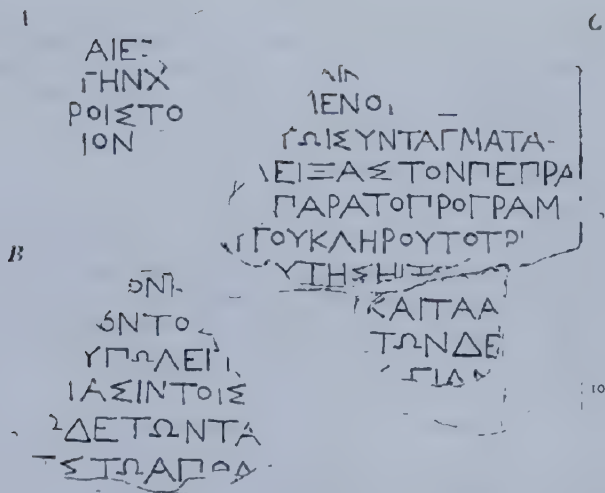 ΑΙΕΣ
ΓΗΝΧ
ΡΟΙΣΤΟ
ΙΟΝ
B
ΟΝΙ
ΟΝΤΟ
ΥΠΩΛΕΙΠ
ΙΑΣΙΝΤΟΙΣ
ΔΕΤΩΝΤΑ
ΣΤΩΑΠΟΔ
C
ΙΕΝΟΙ
ΓΩΙΣΥΝΤΑΓΜΑΤΑ
ΛΕΙΞΑΣΤΟΝΠΕΠΡΑ
ΠΑΡΑΤΟΠΡΟΓΡΑΜ
ΓΟΥΚΛΗΡΟΥΤΟΤΡΙ
ΥΤΗΣΗΙ
ΚΑΙΤΑΑ
ΤΩΝΔΕ
10